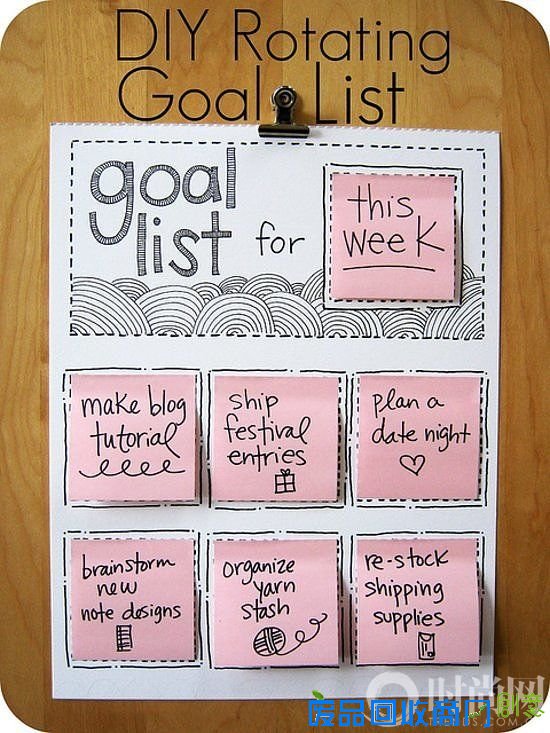 DIY Rotating
Goal List
goal
list for
this
week
make blog
tutorial
ship
festival
entries
plan a
date night
brainstorm
new
note designs
organize
yarn
stash
re-stock
shipping
supplies
时尚网
TRENDS.COM
废品回收